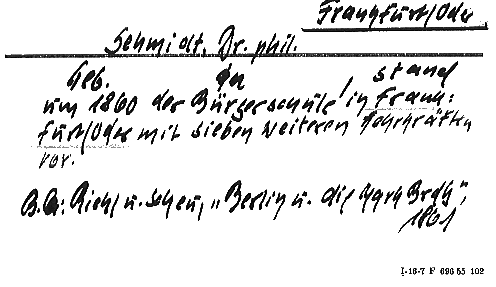 Frankfurt/Oder
Schmidt, Dr. phil.
Geb. da, stand
um 1860 der Bürgerschule in Frank=
furt/Oder mit sieben weiteren Lehrkräften
vor.
B.Qu: Riehl u. Scheu, „Berlin u. die Mark Brdbg",
1861
I-16-7 F 696 55 102